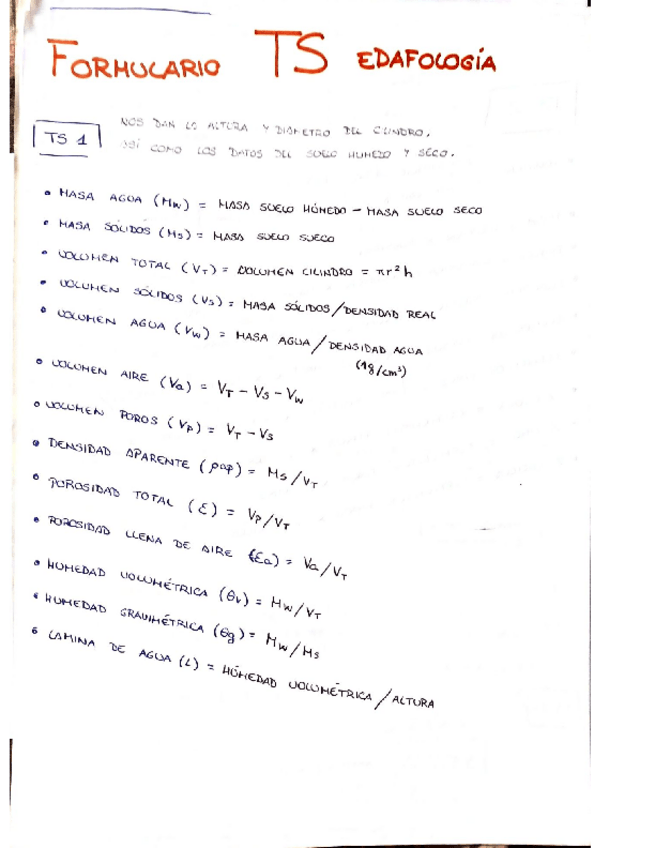 FORMULARIO TS EDAFOLOGÍA
TS 1
NOS DAN LO ALTURA Y DIÁMETRO DEL CILINDRO,
ASÍ COMO LOS DATOS DEL SUELO HUMEDO Y SECO.
• MASA AGUA (Mw) = MASA SUELO HÚMEDO - MASA SUELO SECO
• MASA SÓLIDOS (Ms) = MASA SUELO SUECO
• VOLUMEN TOTAL (VT) = VOLUMEN CILINDRO = πr²h
• VOLUMEN SÓLIDOS (Vs) = MASA SÓLIDOS/DENSIDAD REAL
• VOLUMEN AGUA (Vw) = MASA AGUA/DENSIDAD AGUA
(1g/cm³)
• VOLUMEN AIRE (Va) = VT - Vs - Vw
• VOLUMEN POROS (Vp) = VT - Vs
• DENSIDAD APARENTE (ρap) = Ms/VT
• POROSIDAD TOTAL (ε) = Vp/VT
• POROSIDAD LLENA DE AIRE (εa) = Va/VT
• HUMEDAD VOLUMÉTRICA (θv) = Mw/VT
• HUMEDAD GRAVIMÉTRICA (θg) = Mw/Ms
• LAMINA DE AGUA (L) = HÚMEDAD VOLUMÉTRICA/ALTURA